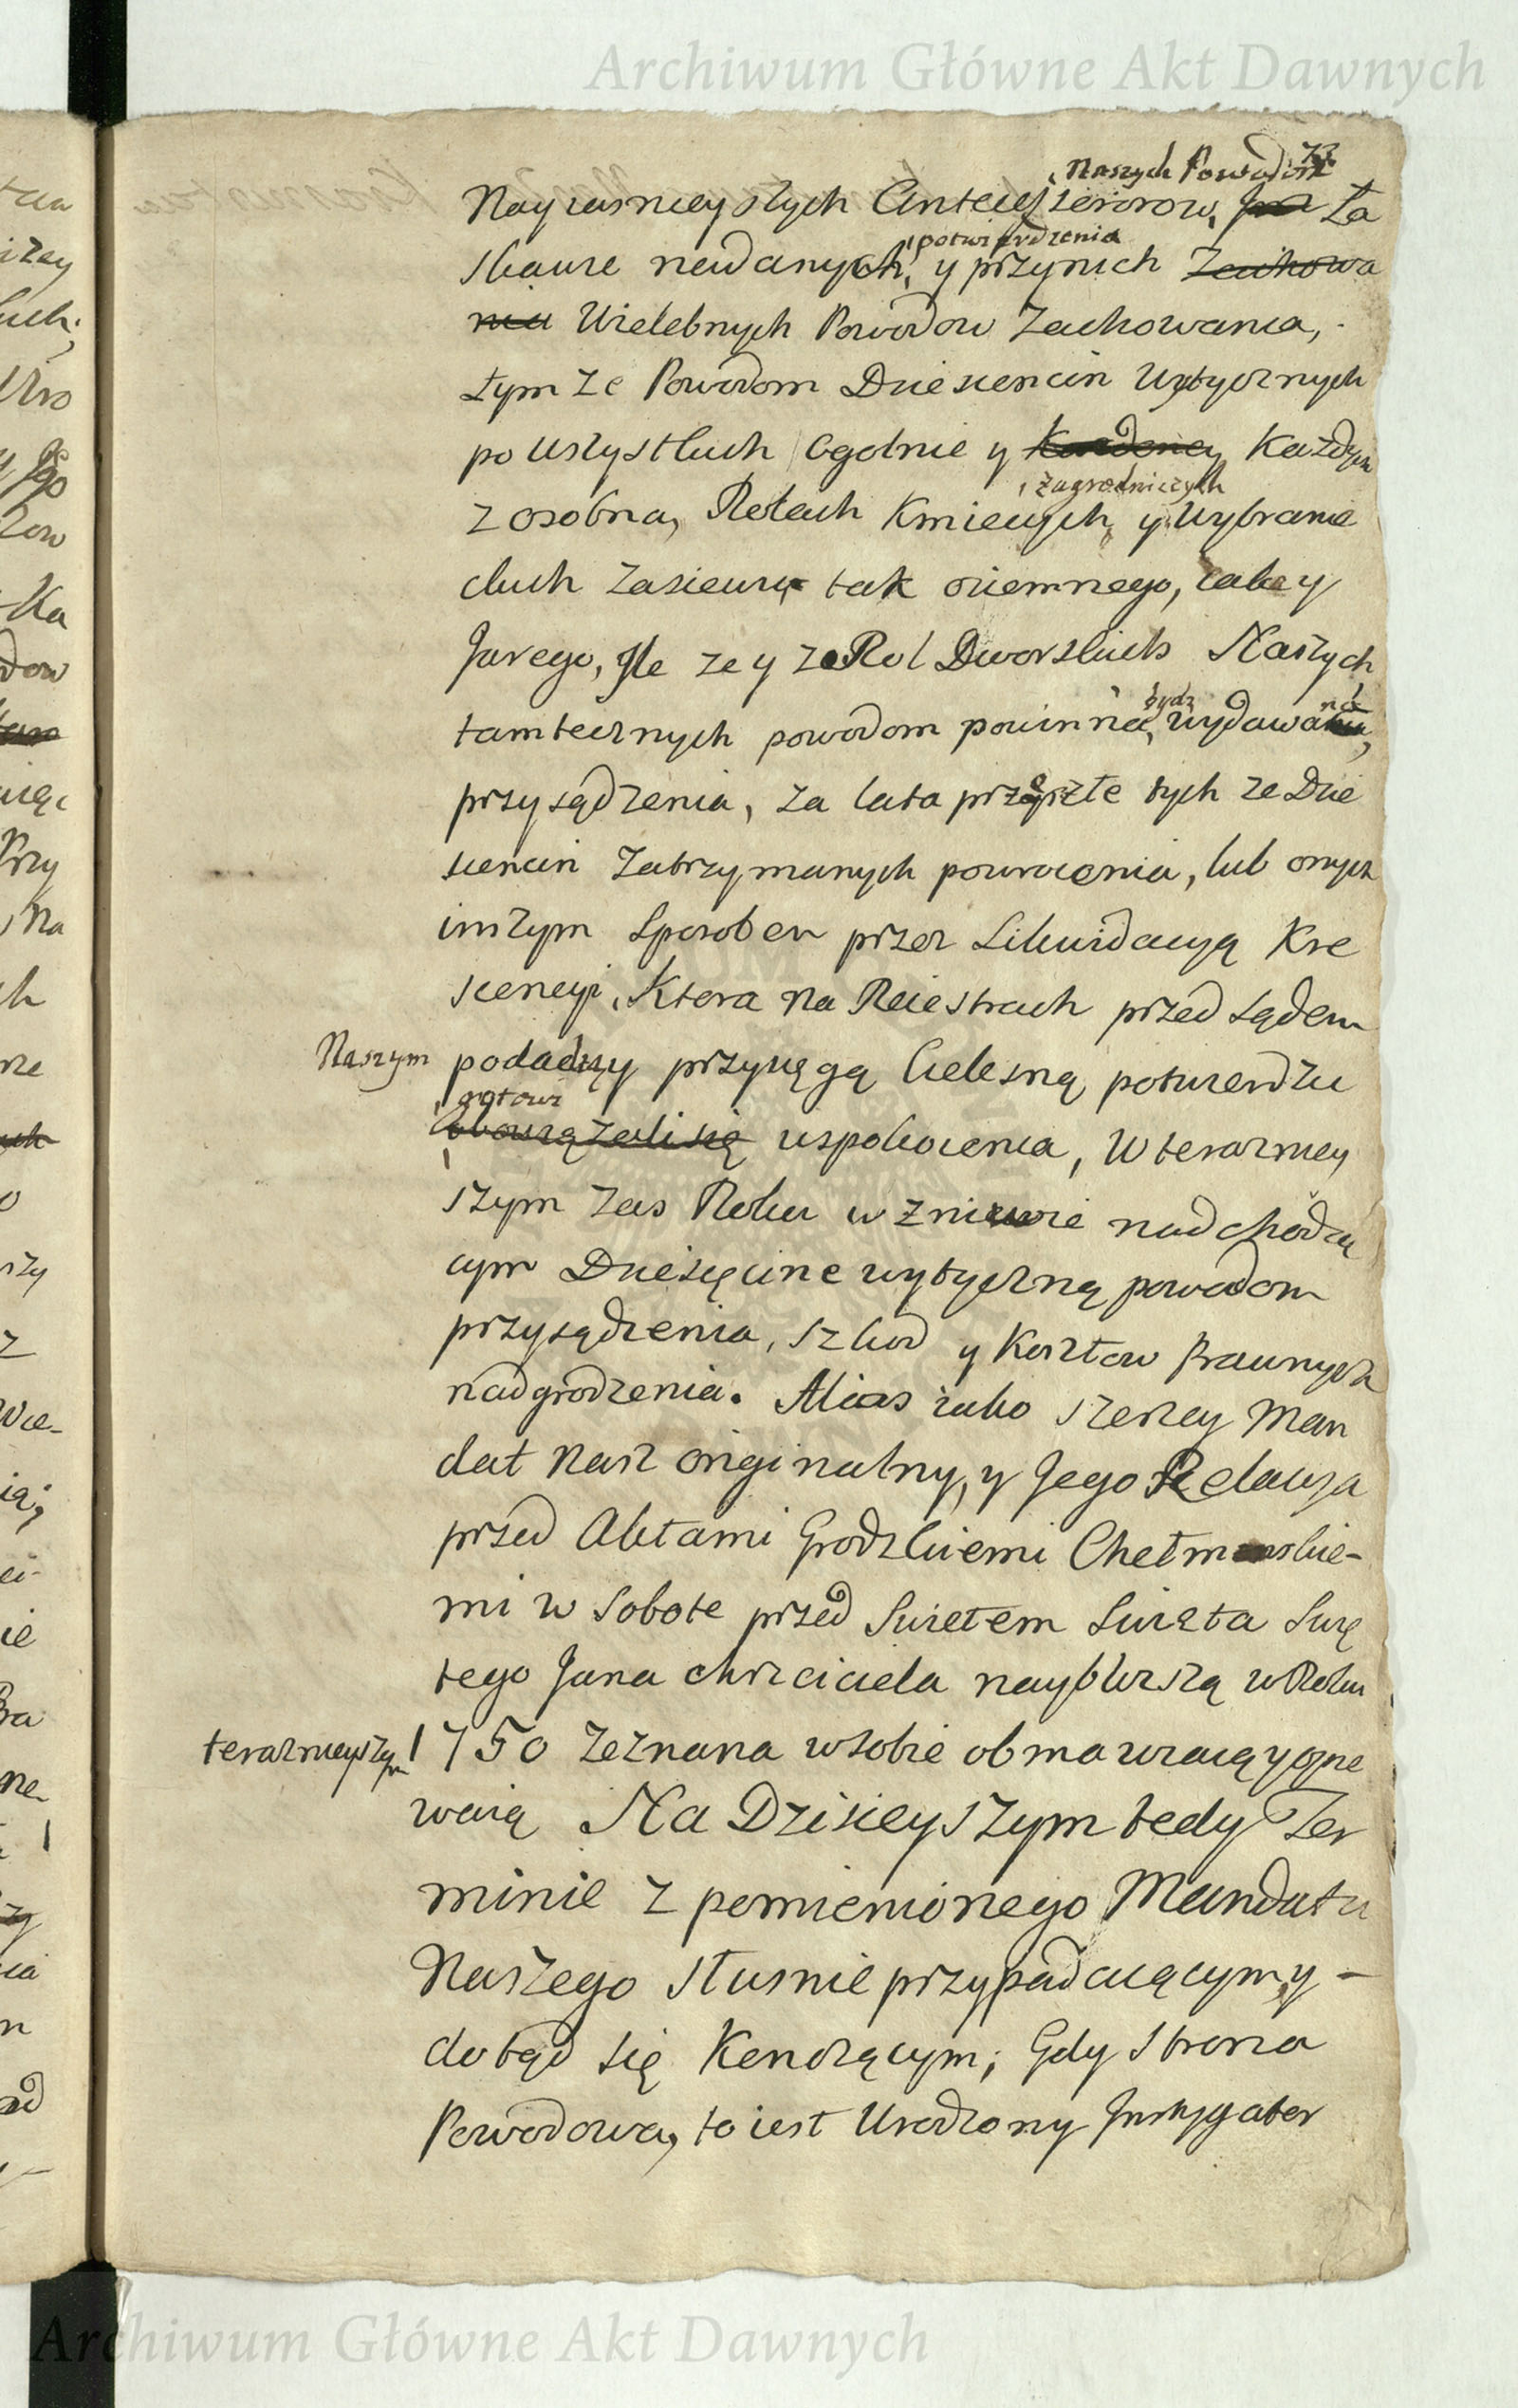 Archiwum Główne Akt Dawnych
73
Naszych Powodow
Nayiasnieyszych Antecessorow, Ła
potwierdzenia
skawie nadanych, y przynich Zachowa
nia Wielebnych Powodow Zachowania,
tym ze Powodom Dziesiencin Wytycznych
po wszystkich Ogolnie y Kazdym
Zagrodniczych
z osobna, Rolach Kmiecych, y Wybranie
ckich Zasiewu tak oziemnego, iako y
Jarego, Jle ze y ze Rol Dworskich Naszych
bydz na
tamtecznych powodom powinna, wydawa
przysądzenia, za lata przeszłe tych ze Dzie
siencin Zatrzymanych powrocenia, lub onych
inszym Sposobem przez Likwidacyą Kre
scencyi, Ktora na Reiestrach przed Sądem
Naszym podaday przysięgą Cielesną potwierdzic
gotowi
obowiązali się uspokoienia, W terazniey
szym zas Roku w zniwie nadchodzą
cym Dziesięcine wytyczną powodom
przysądzenia, szkod y Kosztow Prawnych
nadgrodzenia. Alias iako szerzey Man
dat Nasz originalny, y Jego Relacya
przed Aktami Grodzkiemi Chełminskie-
mi w Sobote przed Swietem Swięta Swię
tego Jana chrzciciela naybliszą w Roku
teraznieyszym 1750 Zeznana w sobie obmawiaią y opie
waią Na Dzisieyszym tedy Ter
minie z pomienionego Mandatu
Naszego słusnie przypadaiącym, y -
dotąd się Kenczącym; Gdy strona
Powodowa, to iest Urodzony Jnstygator
Archiwum Główne Akt Dawnych